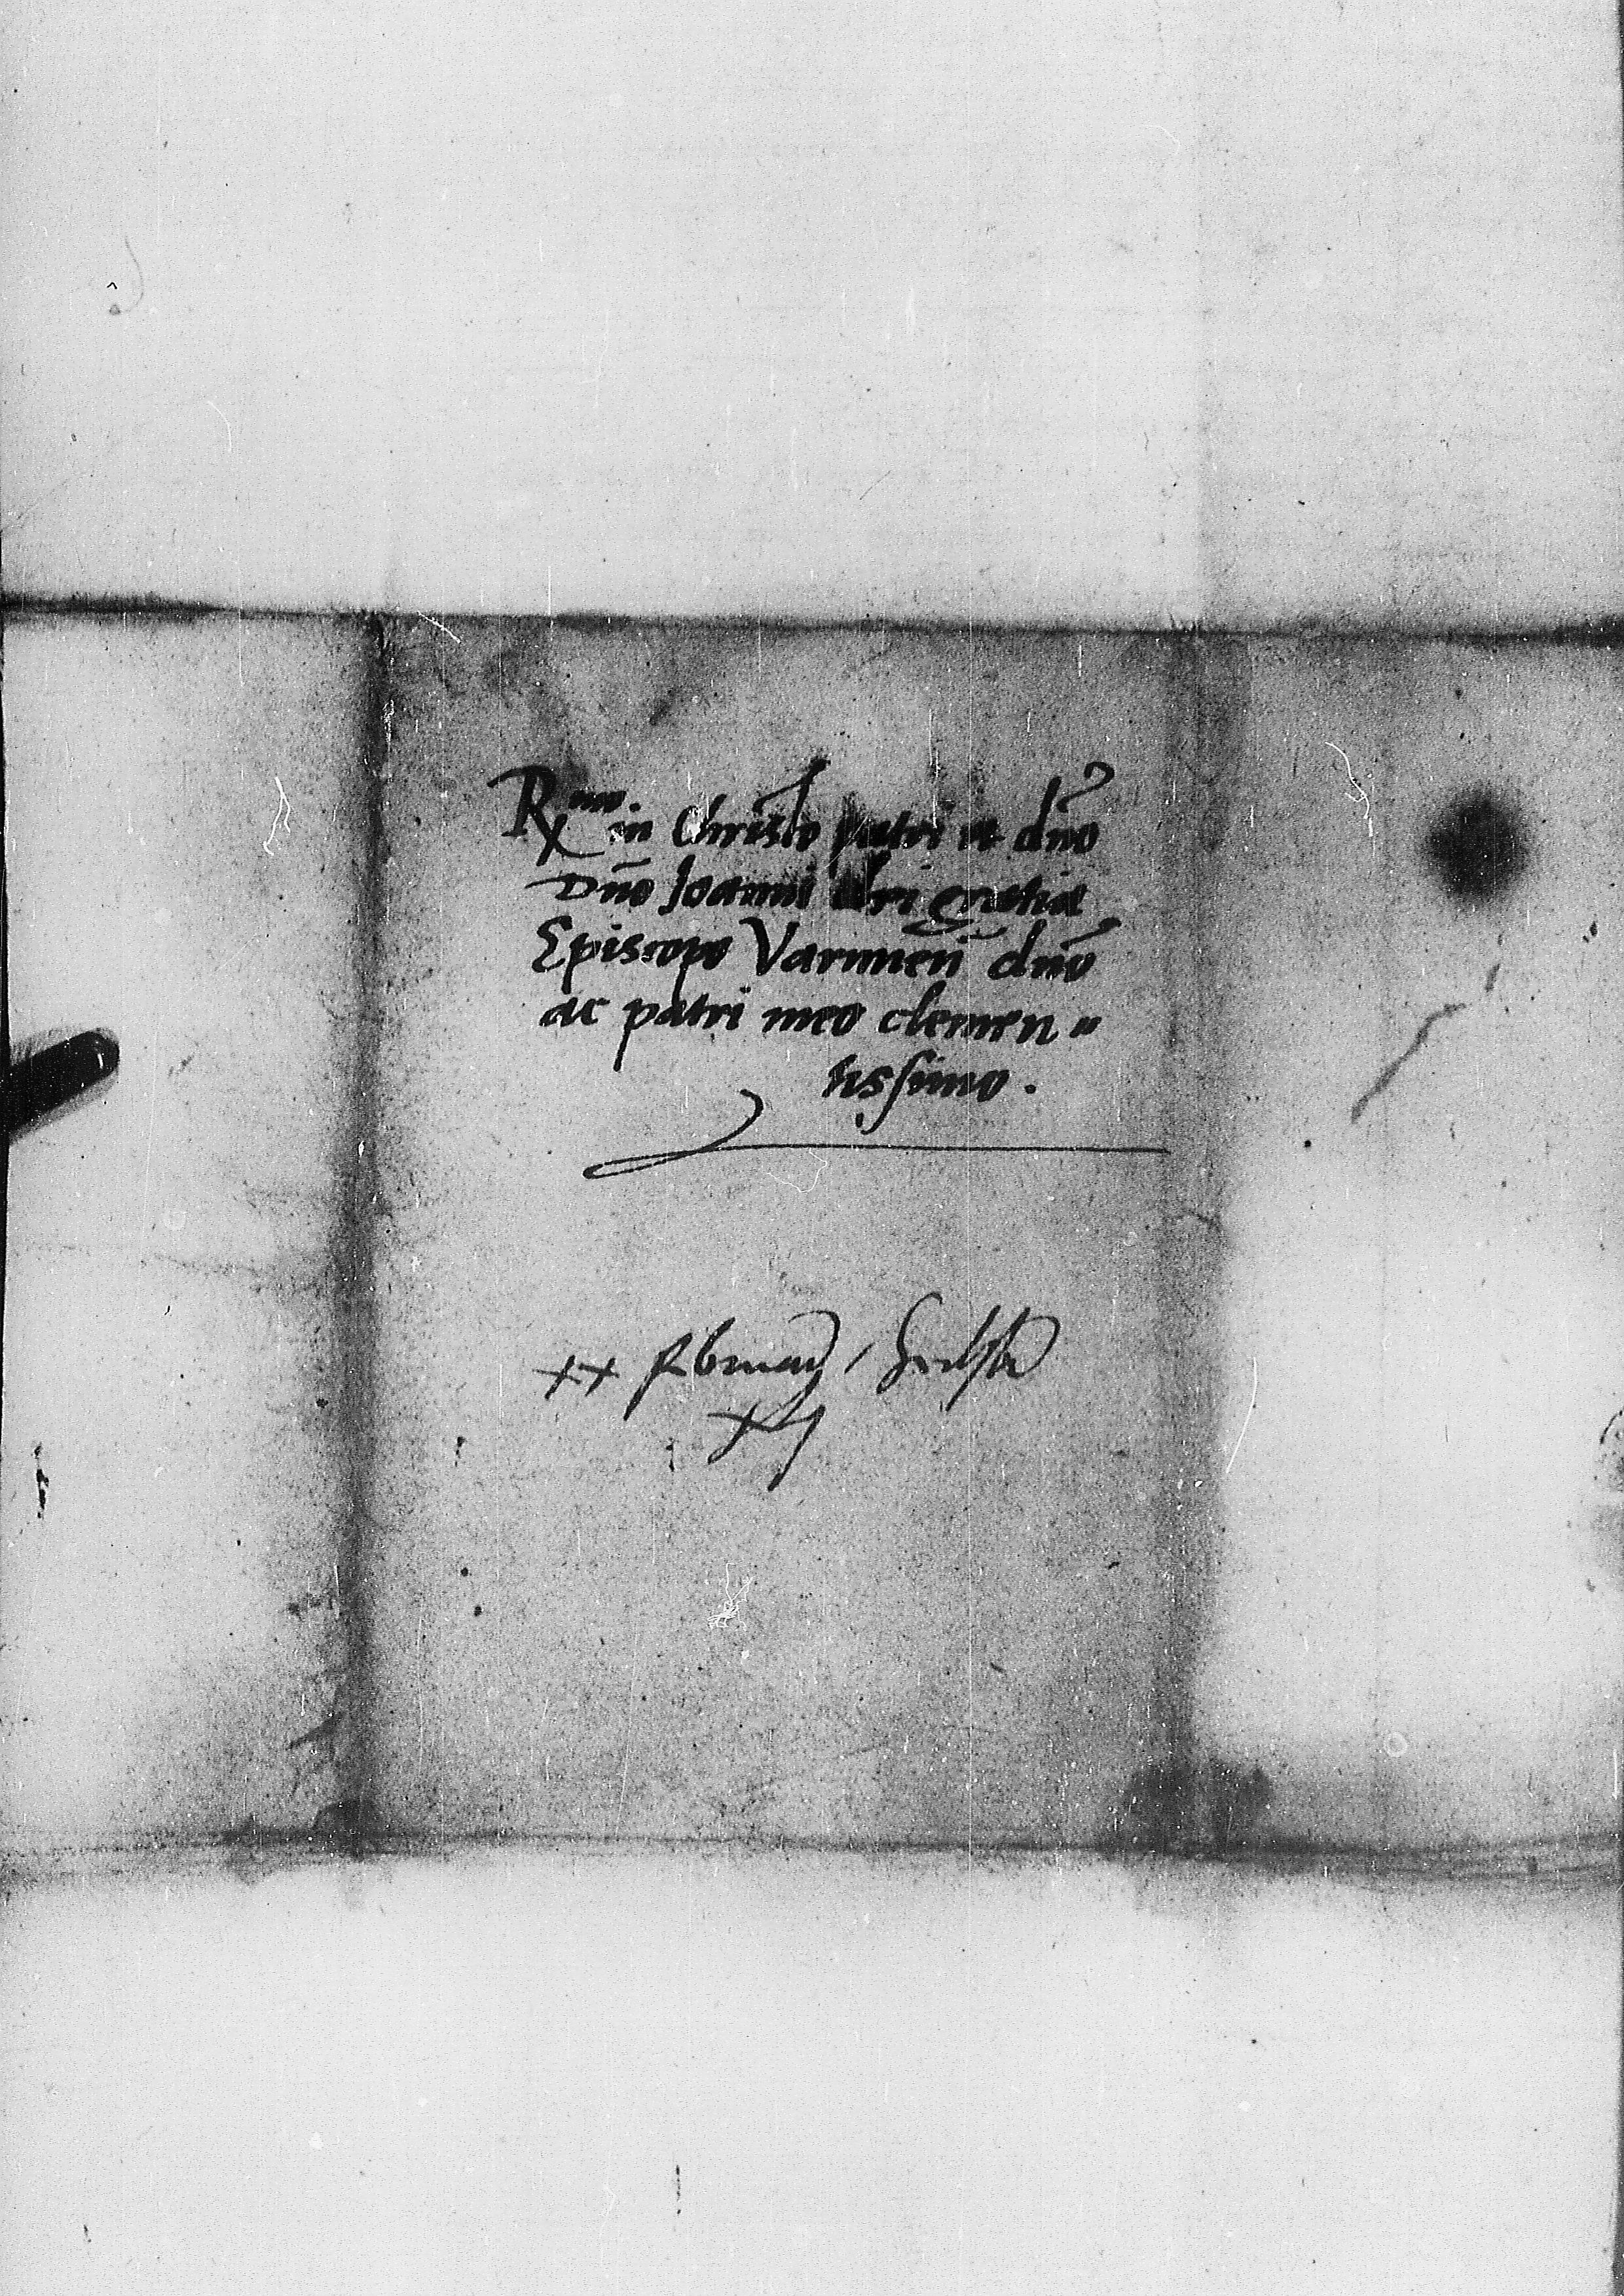 Rx mo. in Christo patri et dno
Dno Joanni Dei gratia
Episcopo Varmien dno
ac patri meo clemen"
tissimo.
xx february